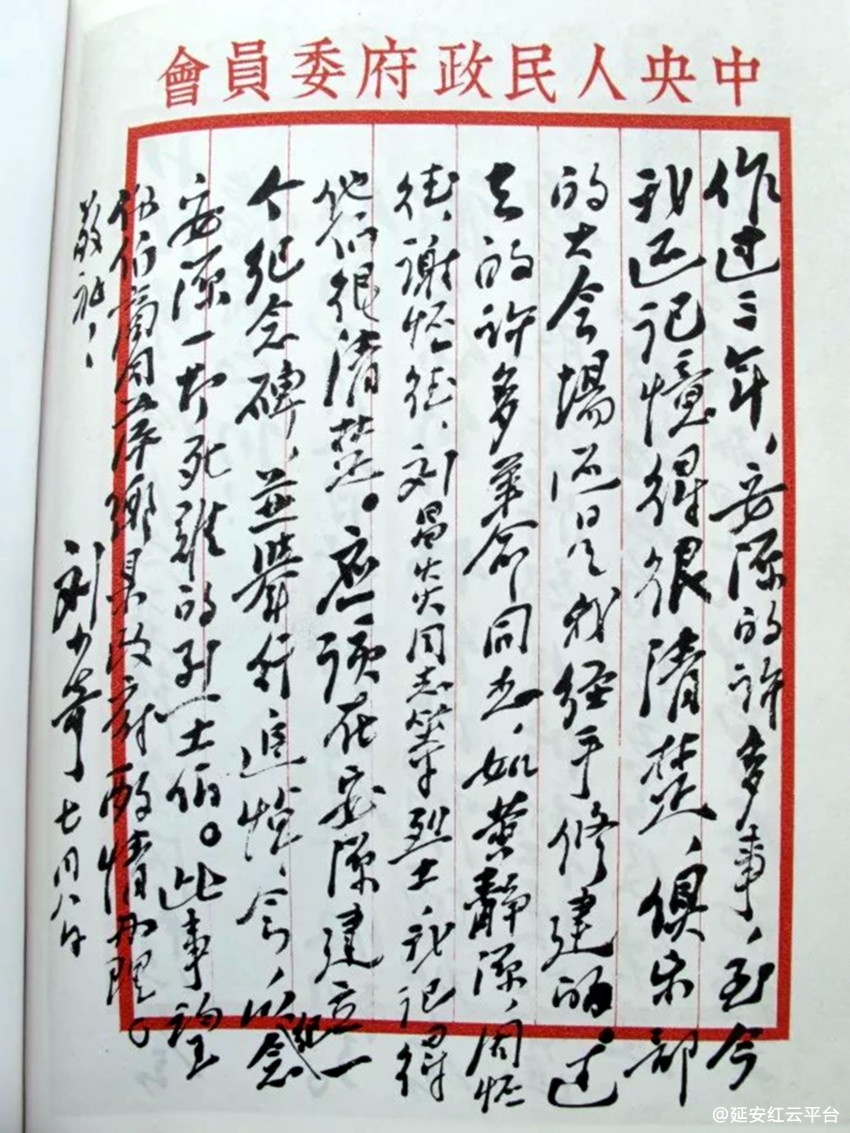 中央人民政府委員會
作过三年，安源的许多事，至今
我还记憶得很清楚，俱乐部
的大会場还是我经手修建的。过
去的许多革命同志，如黄静源，周怀
德，谢怀德，刘昌炎同志等烈士，我记得
他们很清楚。應须在安源建立一
个纪念碑，並举行追悼会，以纪念
安源一切死难的烈士们。此事望
你们商同萍鄉县政府酌情办理。
敬礼！
刘少奇 七月八日
@延安红云平台